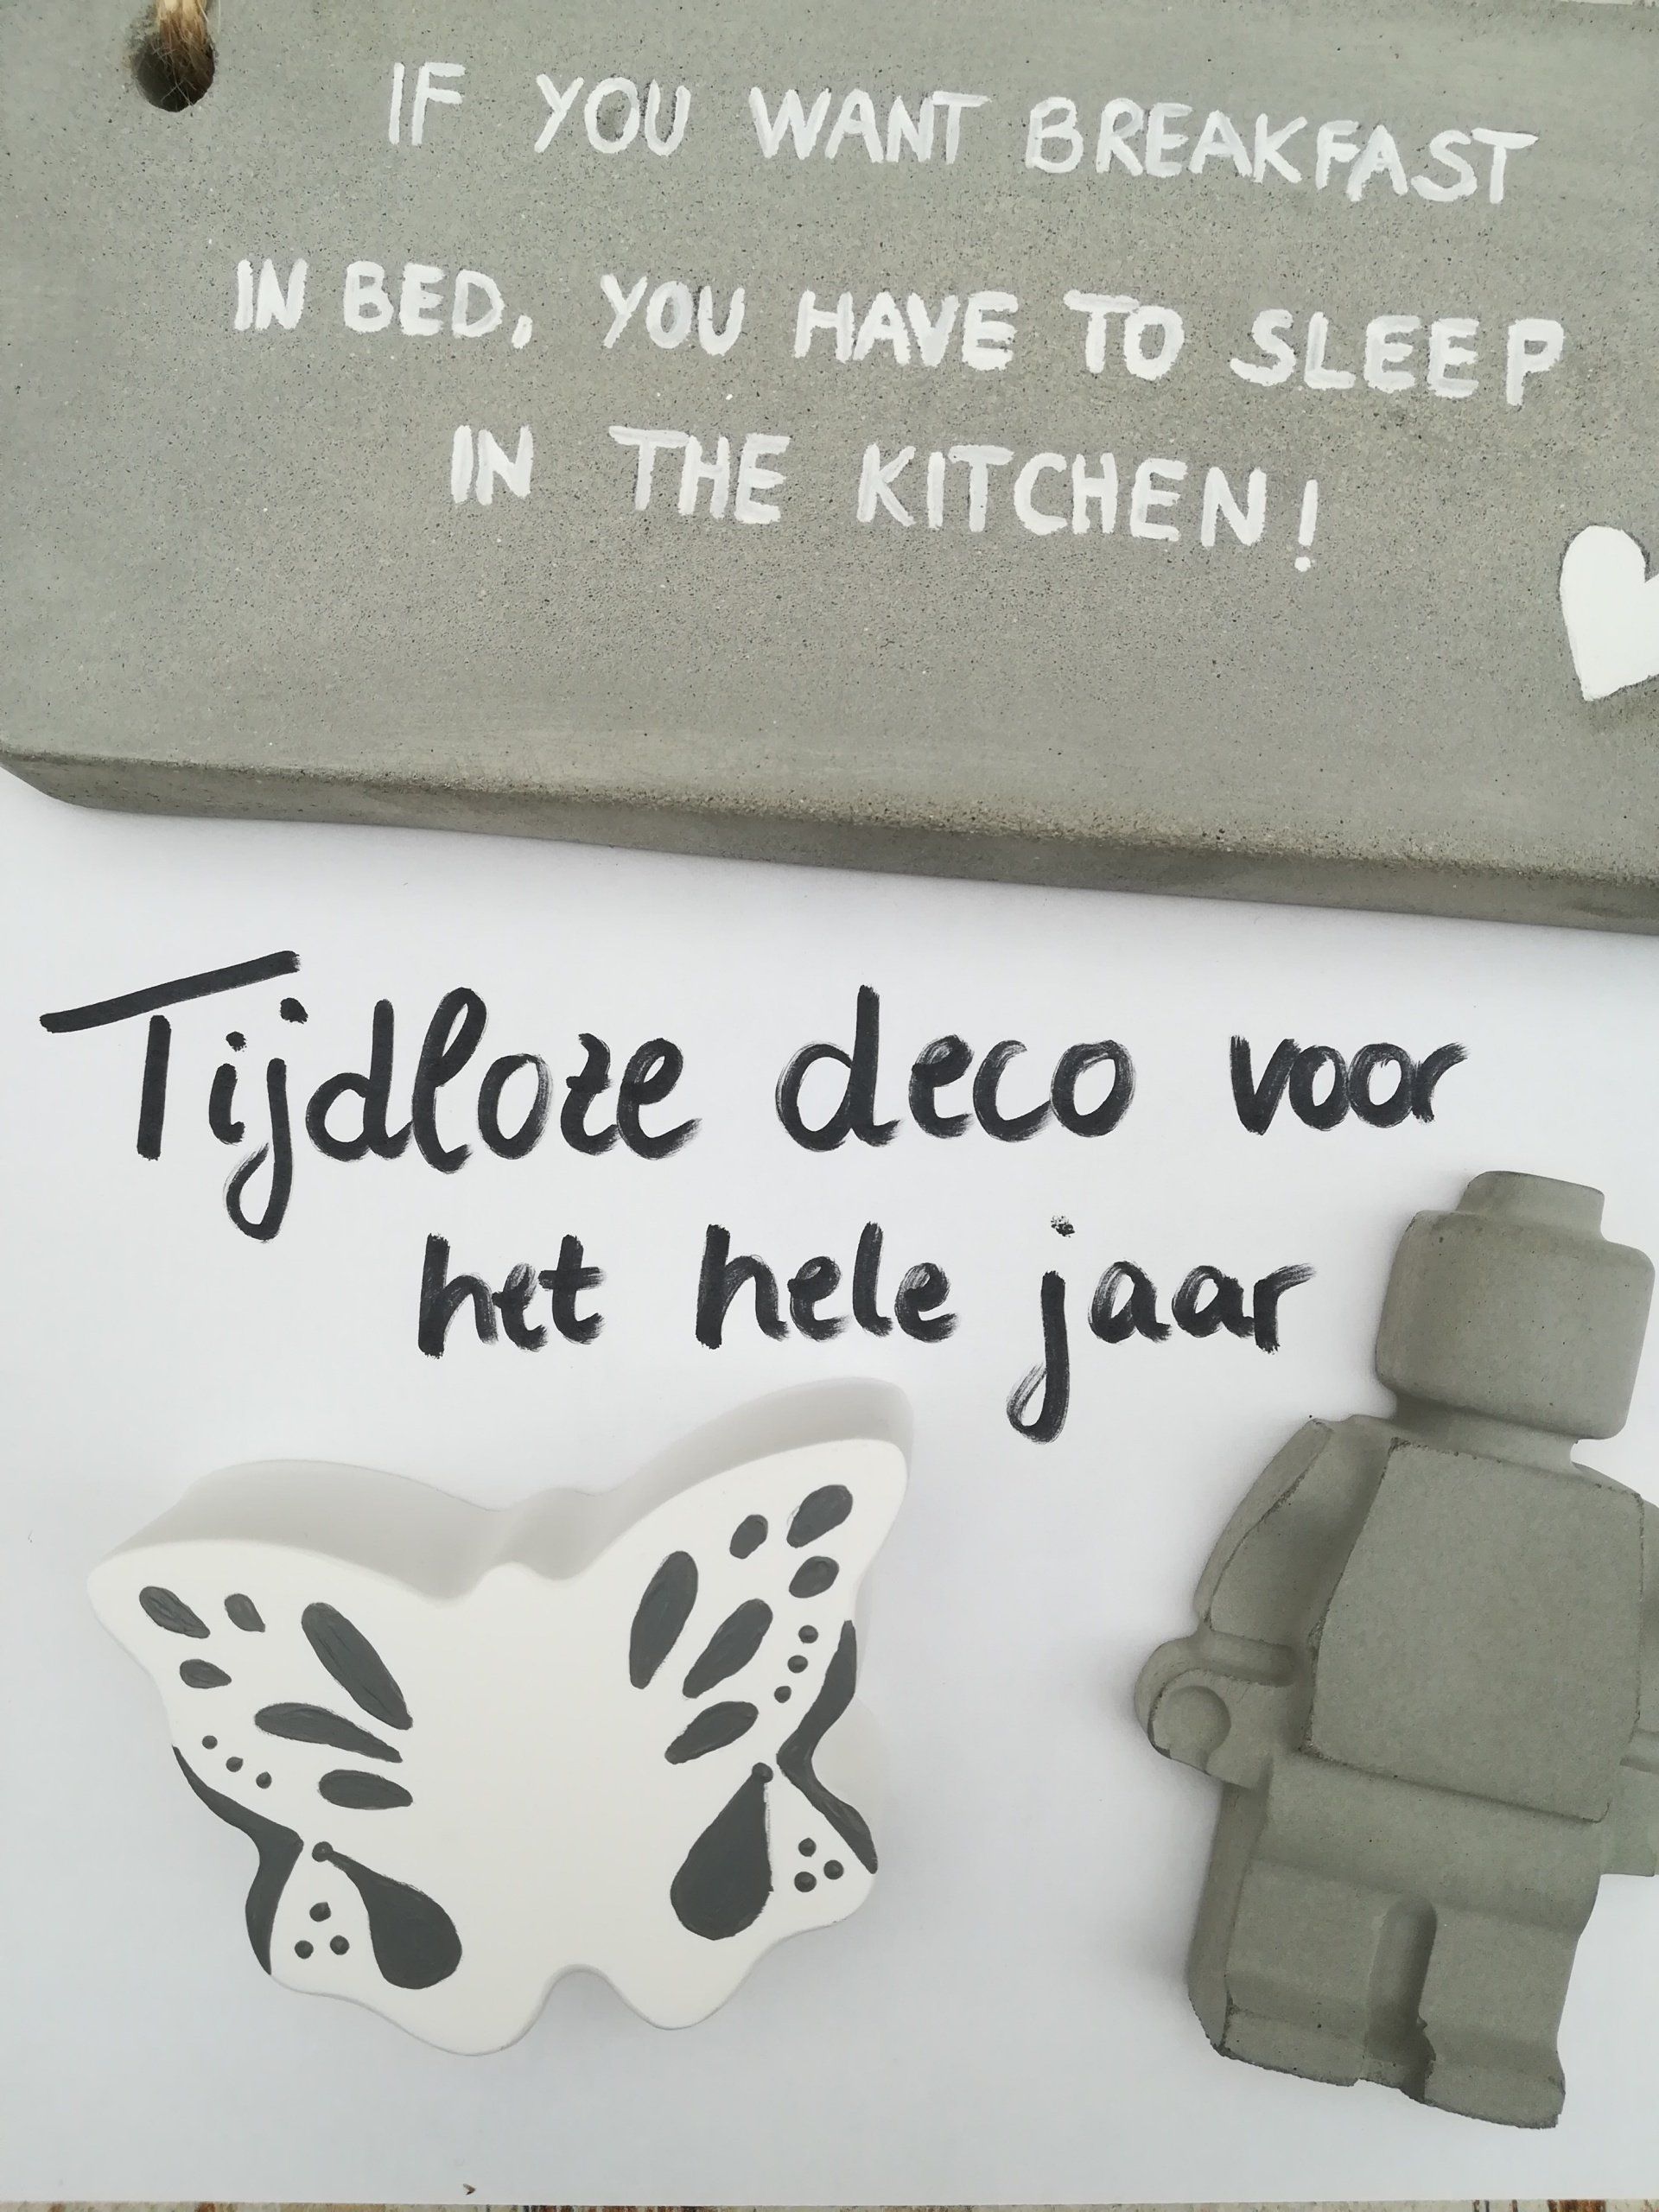 IF YOU WANT BREAKFAST
IN BED, YOU HAVE TO SLEEP
IN THE KITCHEN!
Tijdloze deco voor
het hele jaar